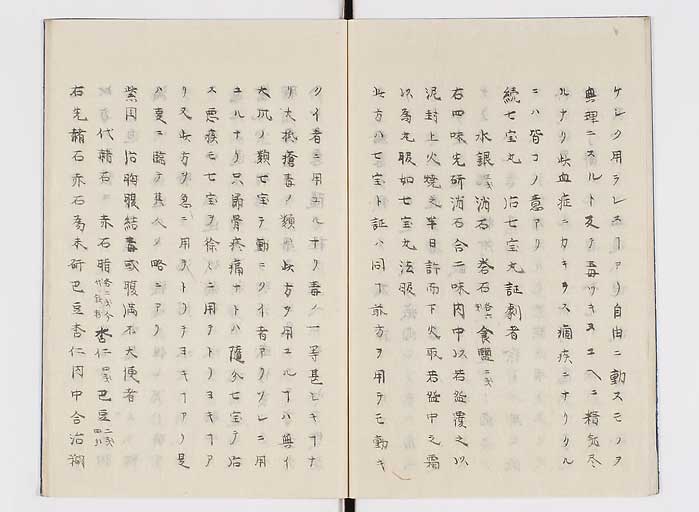 ケレク用ラレスヿアリ自由ニ動スモノヲ
無理ニスルト反テ毒ツキヌユヘニ精気尽
ルナリ此血症ニカキラス痼疾ニナリタル
ニハ皆コノ意アリ
続七宝丸 治七宝丸証劇者
水銀 消石 礬石 食鹽
右四味先研消石合二味内中以若盌覆之以
泥封上火焼之半日許而下火取若盌中之霜
以為丸服如七宝丸法服
此方ハ七宝ト証ハ同丁前方ヲ用テモ動キ
クイ者ニ用ユルナリ毒ノ一等甚ヒキヿナ
リ大抵瘡毒ノ類ハ此方ヲ用ユルヿハ無イ
大抵ノ類七宝テ動ニクイ者アクソレニ用
ユルナリ只節骨疼痛ナトハ随分七宝テ治
ス悪疾モ七宝ヲ徐々ニ用タトリヨキヿア
リ又此方ヲ急ニ用タトリテヨキヿアリ是
ハ変ニ臨テ其人ノ略ニアリ
紫円 治胸腹結毒或腹満不大便者
代赭石 赤石脂 杏仁 巴豆
右先赭石赤石為末研巴豆杏仁内中合治糊